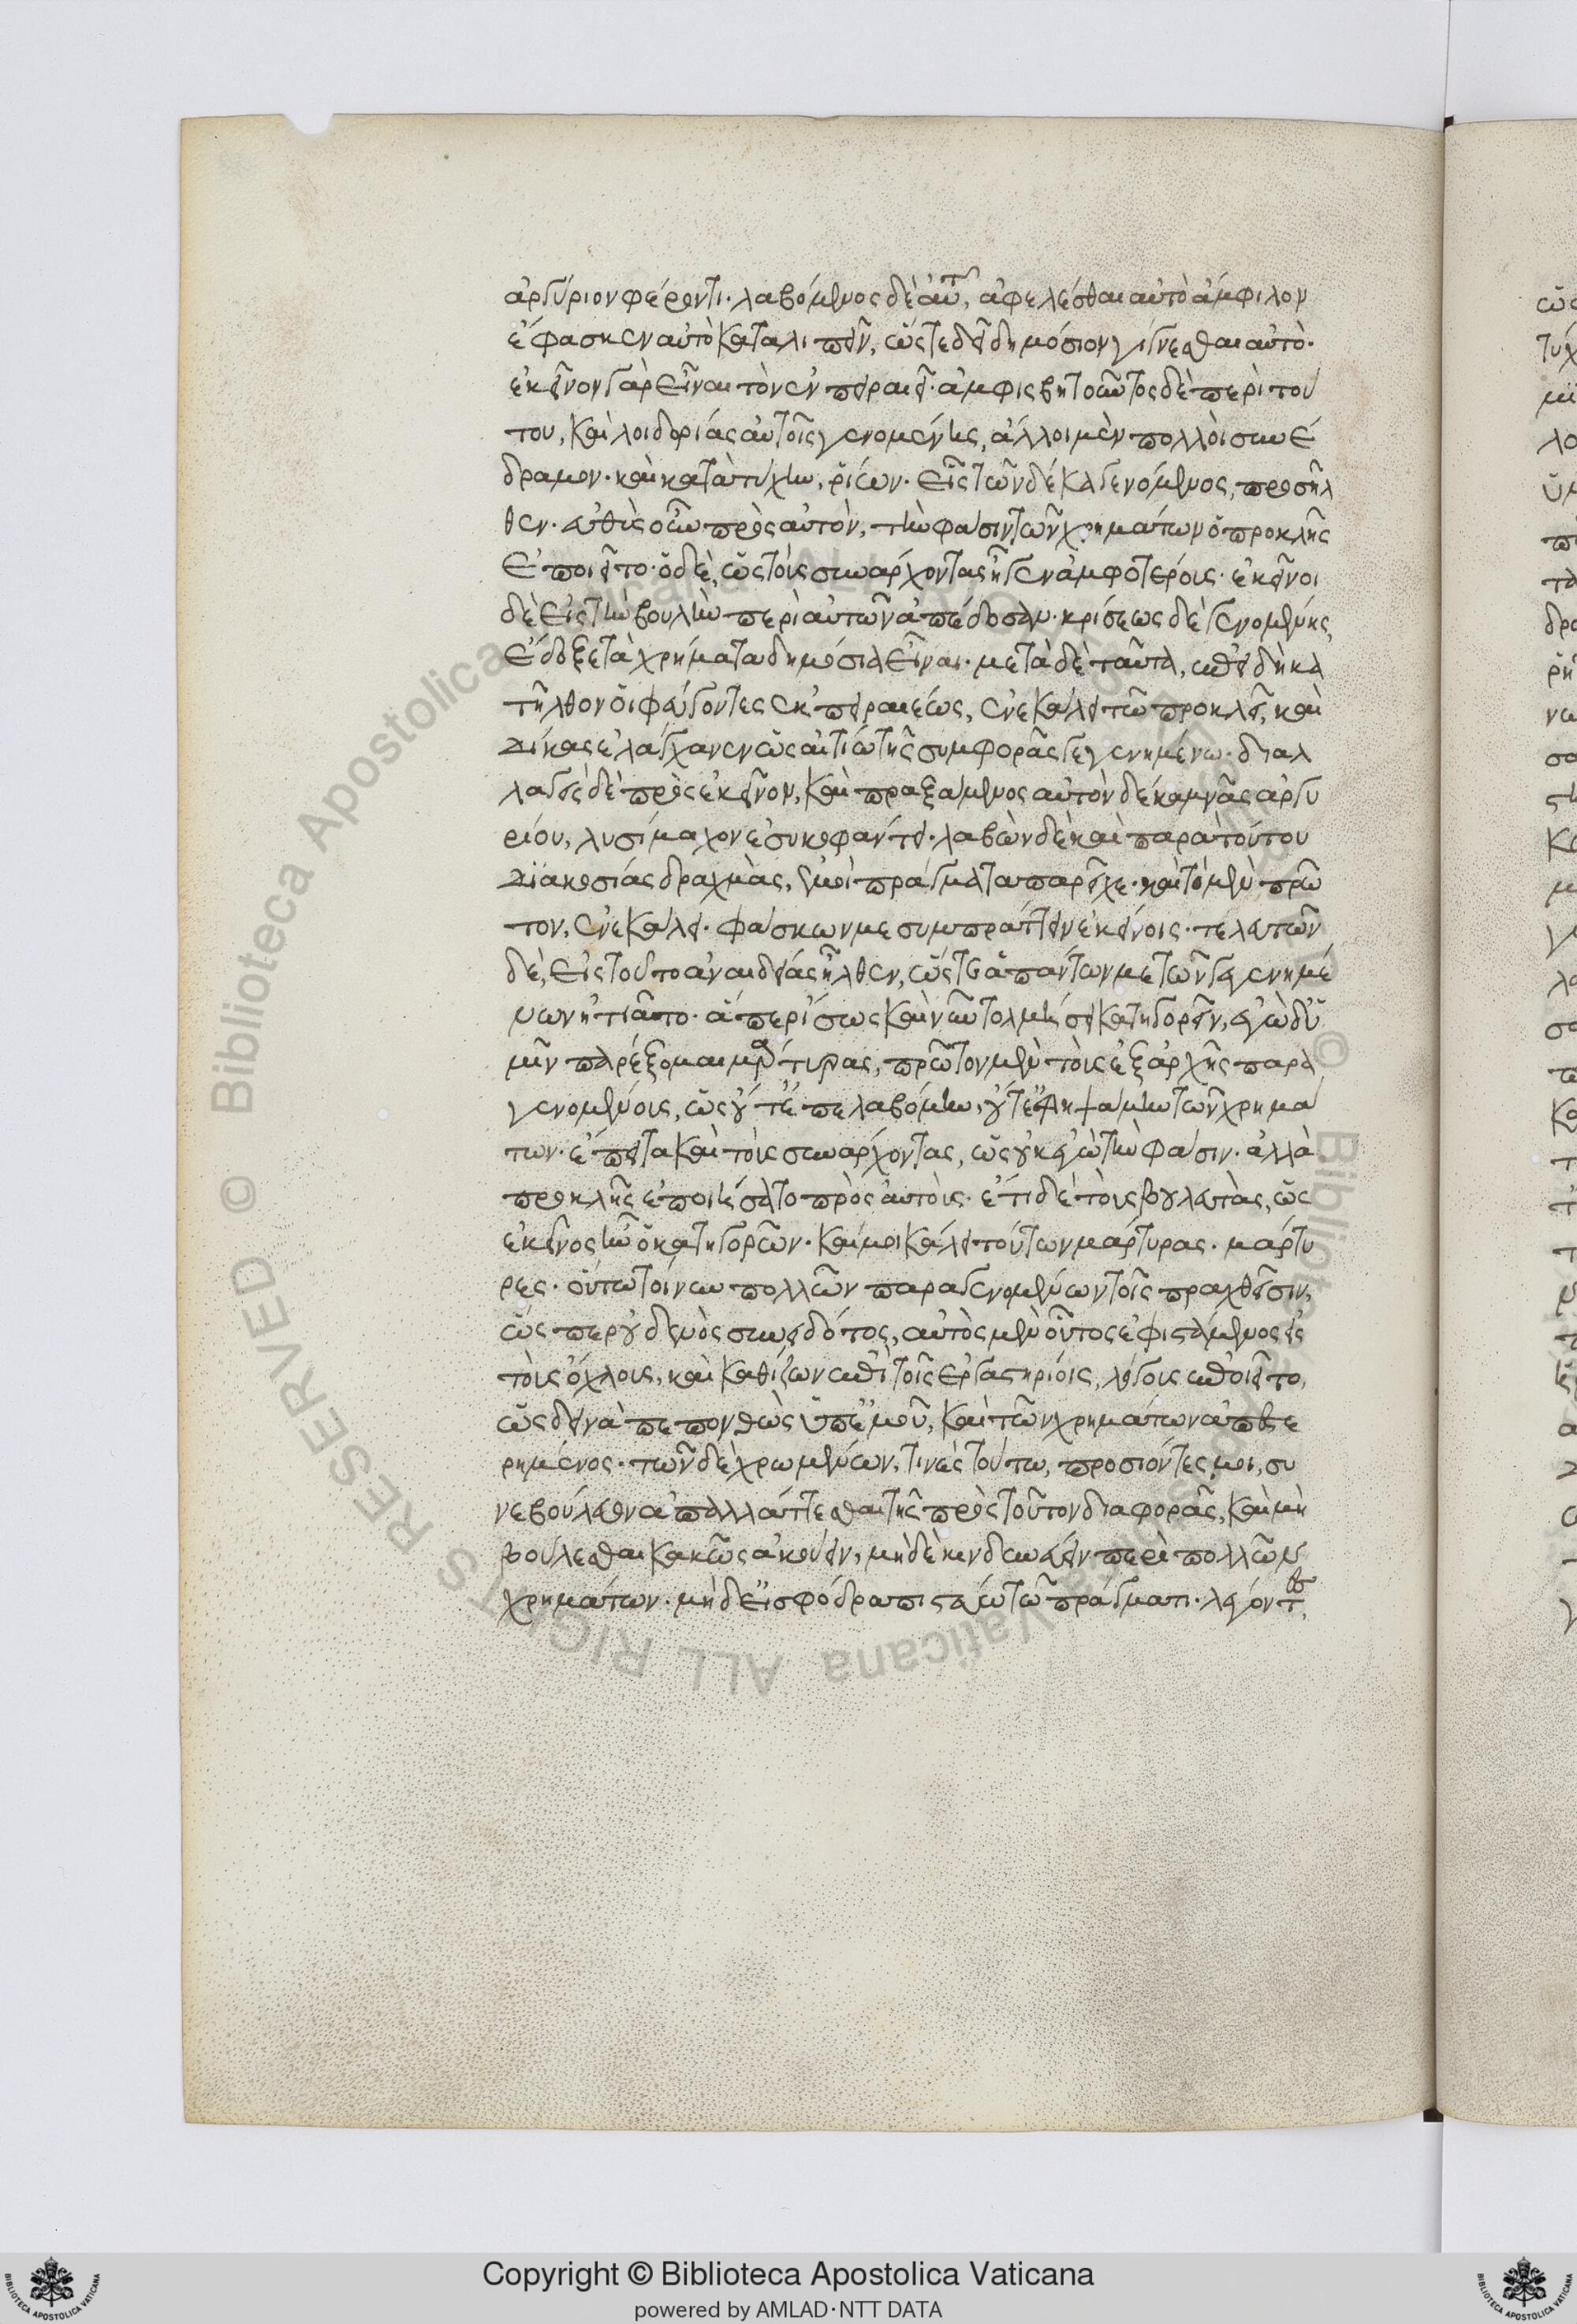 ἀργύριον φέροντι· λαβόμενος δὲ αὐτοῦ, ἀφελέσθαι αὐτὸ ἀμφιλον
ἔφασκεν αὐτὸ καταλιπεῖν, ὥστε δεῖ δημόσιον γίγνεσθαι αὐτό·
ἐκεῖνον γὰρ εἶναι τὸν ἐν πειραιεῖ· ἀμφισβητοῦντος δὲ περὶ τού
του, καὶ λοιδορίας αὐτοῖς γενομένης, ἄλλοι μὲν πολλοὶ συνέ
δραμον· καὶ κατὰ τύχην, ῥίνων· εἷς τῶν δέκα γενόμενος, προσῆλ
θεν· εὐθὺς οὖν πρὸς αὐτὸν, τὴν φάσιν τῶν χρημάτων ὁ προκλῆς
ἐποιεῖτο· ὁ δὲ, ὡς τοὺς συνάρχοντας ἦγεν ἀμφοτέρους· ἐκεῖνοι
δὲ εἰς τὴν βουλὴν περὶ αὐτῶν ἀπέδοσαν· κρίσεως δὲ γενομένης,
ἔδοξε τὰ χρήματα δημόσια εἶναι· μετὰ δὲ ταῦτα, ἐπειδὴ κα
τῆλθον οἱ φεύγοντες ἐκ πειραιέως, ἐνεκάλει τῶ προκλεῖ, καὶ
δίκας ἐλάγχανεν ὡς αἰτίω τῆς συμφορᾶς γεγενημένω· διαλ
λαγεὶς δὲ πρὸς ἐκεῖνον, καὶ πραξάμενος αὐτὸν δέκα μνᾶς ἀργυ
ρίου, λυσίμαχον ἐσυκοφάντει· λαβὼν δὲ καὶ παρὰ τούτου
διακοσίας δραχμὰς, ἐμοὶ πράγματα παρεῖχε· καὶ τὸ μὲν πρῶ
τον, ἐνεκάλει· φάσκων με συμπράττειν ἐκείνοις· τελευτῶν
δὲ, εἰς τοῦτο ἀναιδείας ἦλθεν, ὥστε ἁπάντων με τῶν γεγενημέ
νων ἠτιᾶτο· ἅπερ ἴσως καὶ νῦν τολμήσει κατηγορεῖν, ἐγὼ δ' ὑ
μῖν παρέξομαι μάρτυρας, πρῶτον μὲν τοὺς ἐξ ἀρχῆς παρα
γενομένους, ὡς οὔτ' ἐπελαβόμην, οὔτ' ἐφηψάμην τῶν χρημά
των· ἔπειτα καὶ τοὺς συνάρχοντας, ὡς οὐκ ἐγὼ τὴν φάσιν· ἀλλὰ
προκλῆς ἐποιήσατο πρὸς αὐτούς· ἔτι δὲ τοὺς βουλευτὰς, ὡς
ἐκεῖνος ἦν ὁ κατηγορῶν· καί μοι κάλει τούτων μάρτυρας· μάρτυ
ρες· οὕτω τοίνυν πολλῶν παραγενομένων τοῖς πραχθεῖσιν,
ὥσπερ οὐδενὸς συνειδότος, αὐτὸς μὲν οὗτος ἐφιστάμενος εἰς
τοὺς ὄχλους, καὶ καθίζων ἐπὶ τοῖς ἐργαστηρίοις, λόγους ἐποιεῖτο,
ὡς δεινὰ πεπονθὼς ὑπ' ἐμοῦ, καὶ τῶν χρημάτων ἀπεστε
ρημένος· τῶν δὲ χρωμένων, τινὲς τούτω, προσιόντες μοι, συ
νεβούλευον ἀπαλλάττεσθαι τῆς πρὸς τοῦτον διαφορᾶς, καὶ μὴ
βούλεσθαι κακῶς ἀκούειν, μηδὲ κινδυνεύειν περὶ πολλῶν
χρημάτων· μηδ' εἰ σφόδρα πιστεύω τῶ πράγματι· λέγοντες